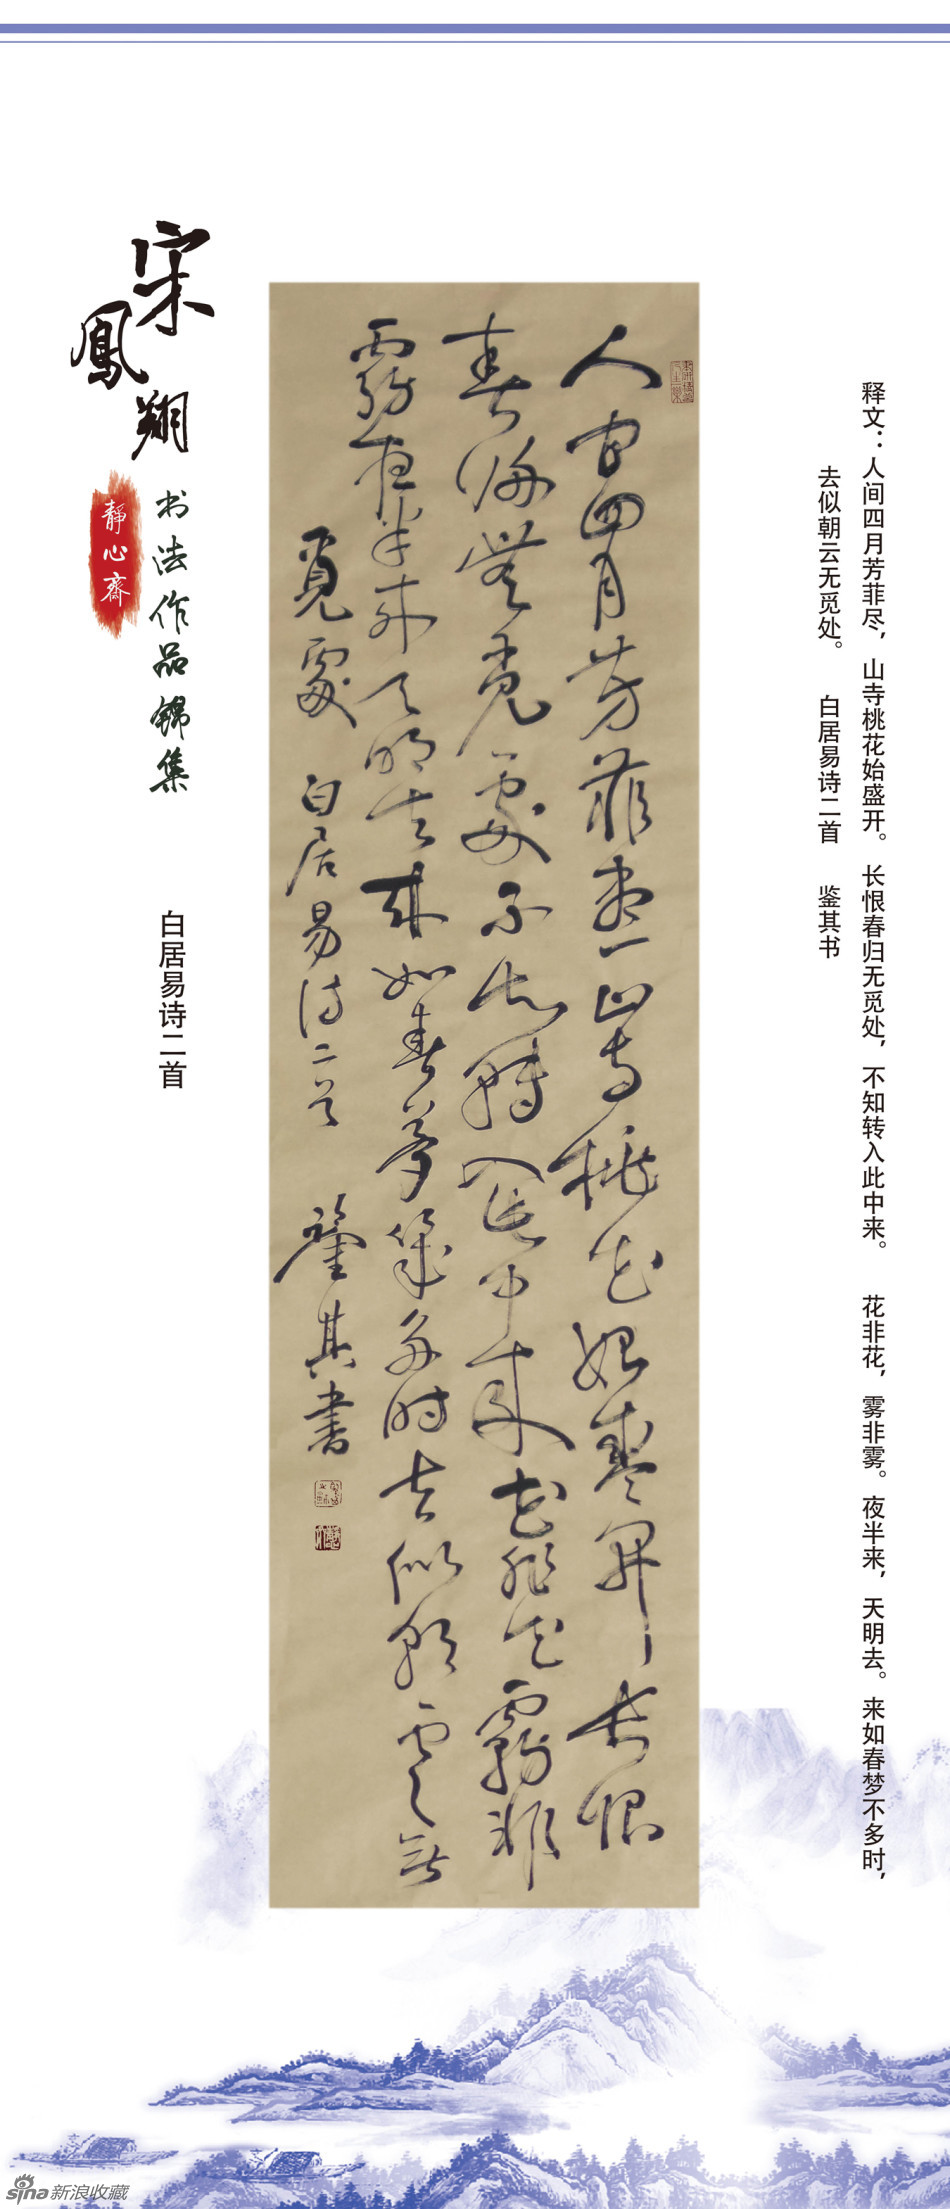 释文：人间四月芳菲尽，山寺桃花始盛开。长恨春归无觅处，不知转入此中来。 花非花，雾非雾。夜半来，天明去。来如春梦不多时，
去似朝云无觅处。 白居易诗二首 鉴其书
人间四月芳菲尽山寺桃花始盛開长恨
春归無觅處不知转入此中来花非花霧非
霧夜半来天明去来如春夢幾多时去似朝雲無
覓處 白居易诗二首 鑒其書
宋鳳翔
书法作品锦集
靜心齋
白居易诗二首
sina新浪收藏